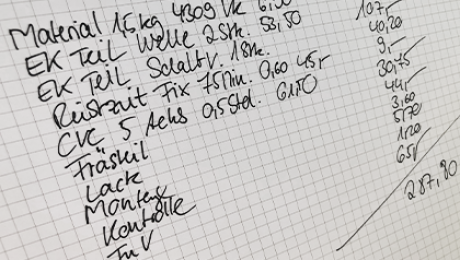 Material 1,5 kg 430g Vk 107,-
EK Teil Welle 2 Stk. 53,50 40,20
EK Teil Schaltv. 1 Stk. 9,-
Rüstzeit Fix 75 Min. 0,60 45,- 30,75
CNC 5 Achs 0,5 Std. 61,50 44,-
Frästeil 3,60
Lack
Montage 1,20
Kontrolle 65,-
287,80